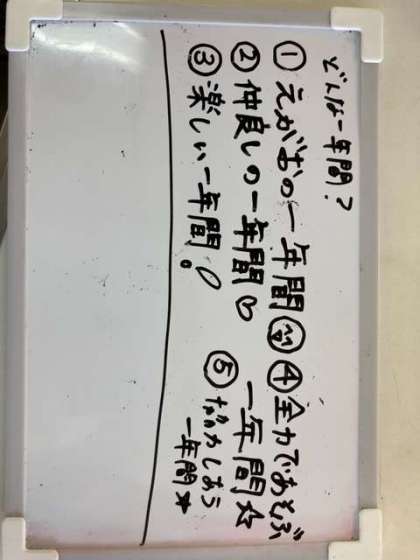 どんな一年間?
① えがおの一年間
② 仲良しの一年間♡
③ 楽しい一年間!
④ 全力であそぶ
一年間☆
⑤ 協力しあう
一年間☆